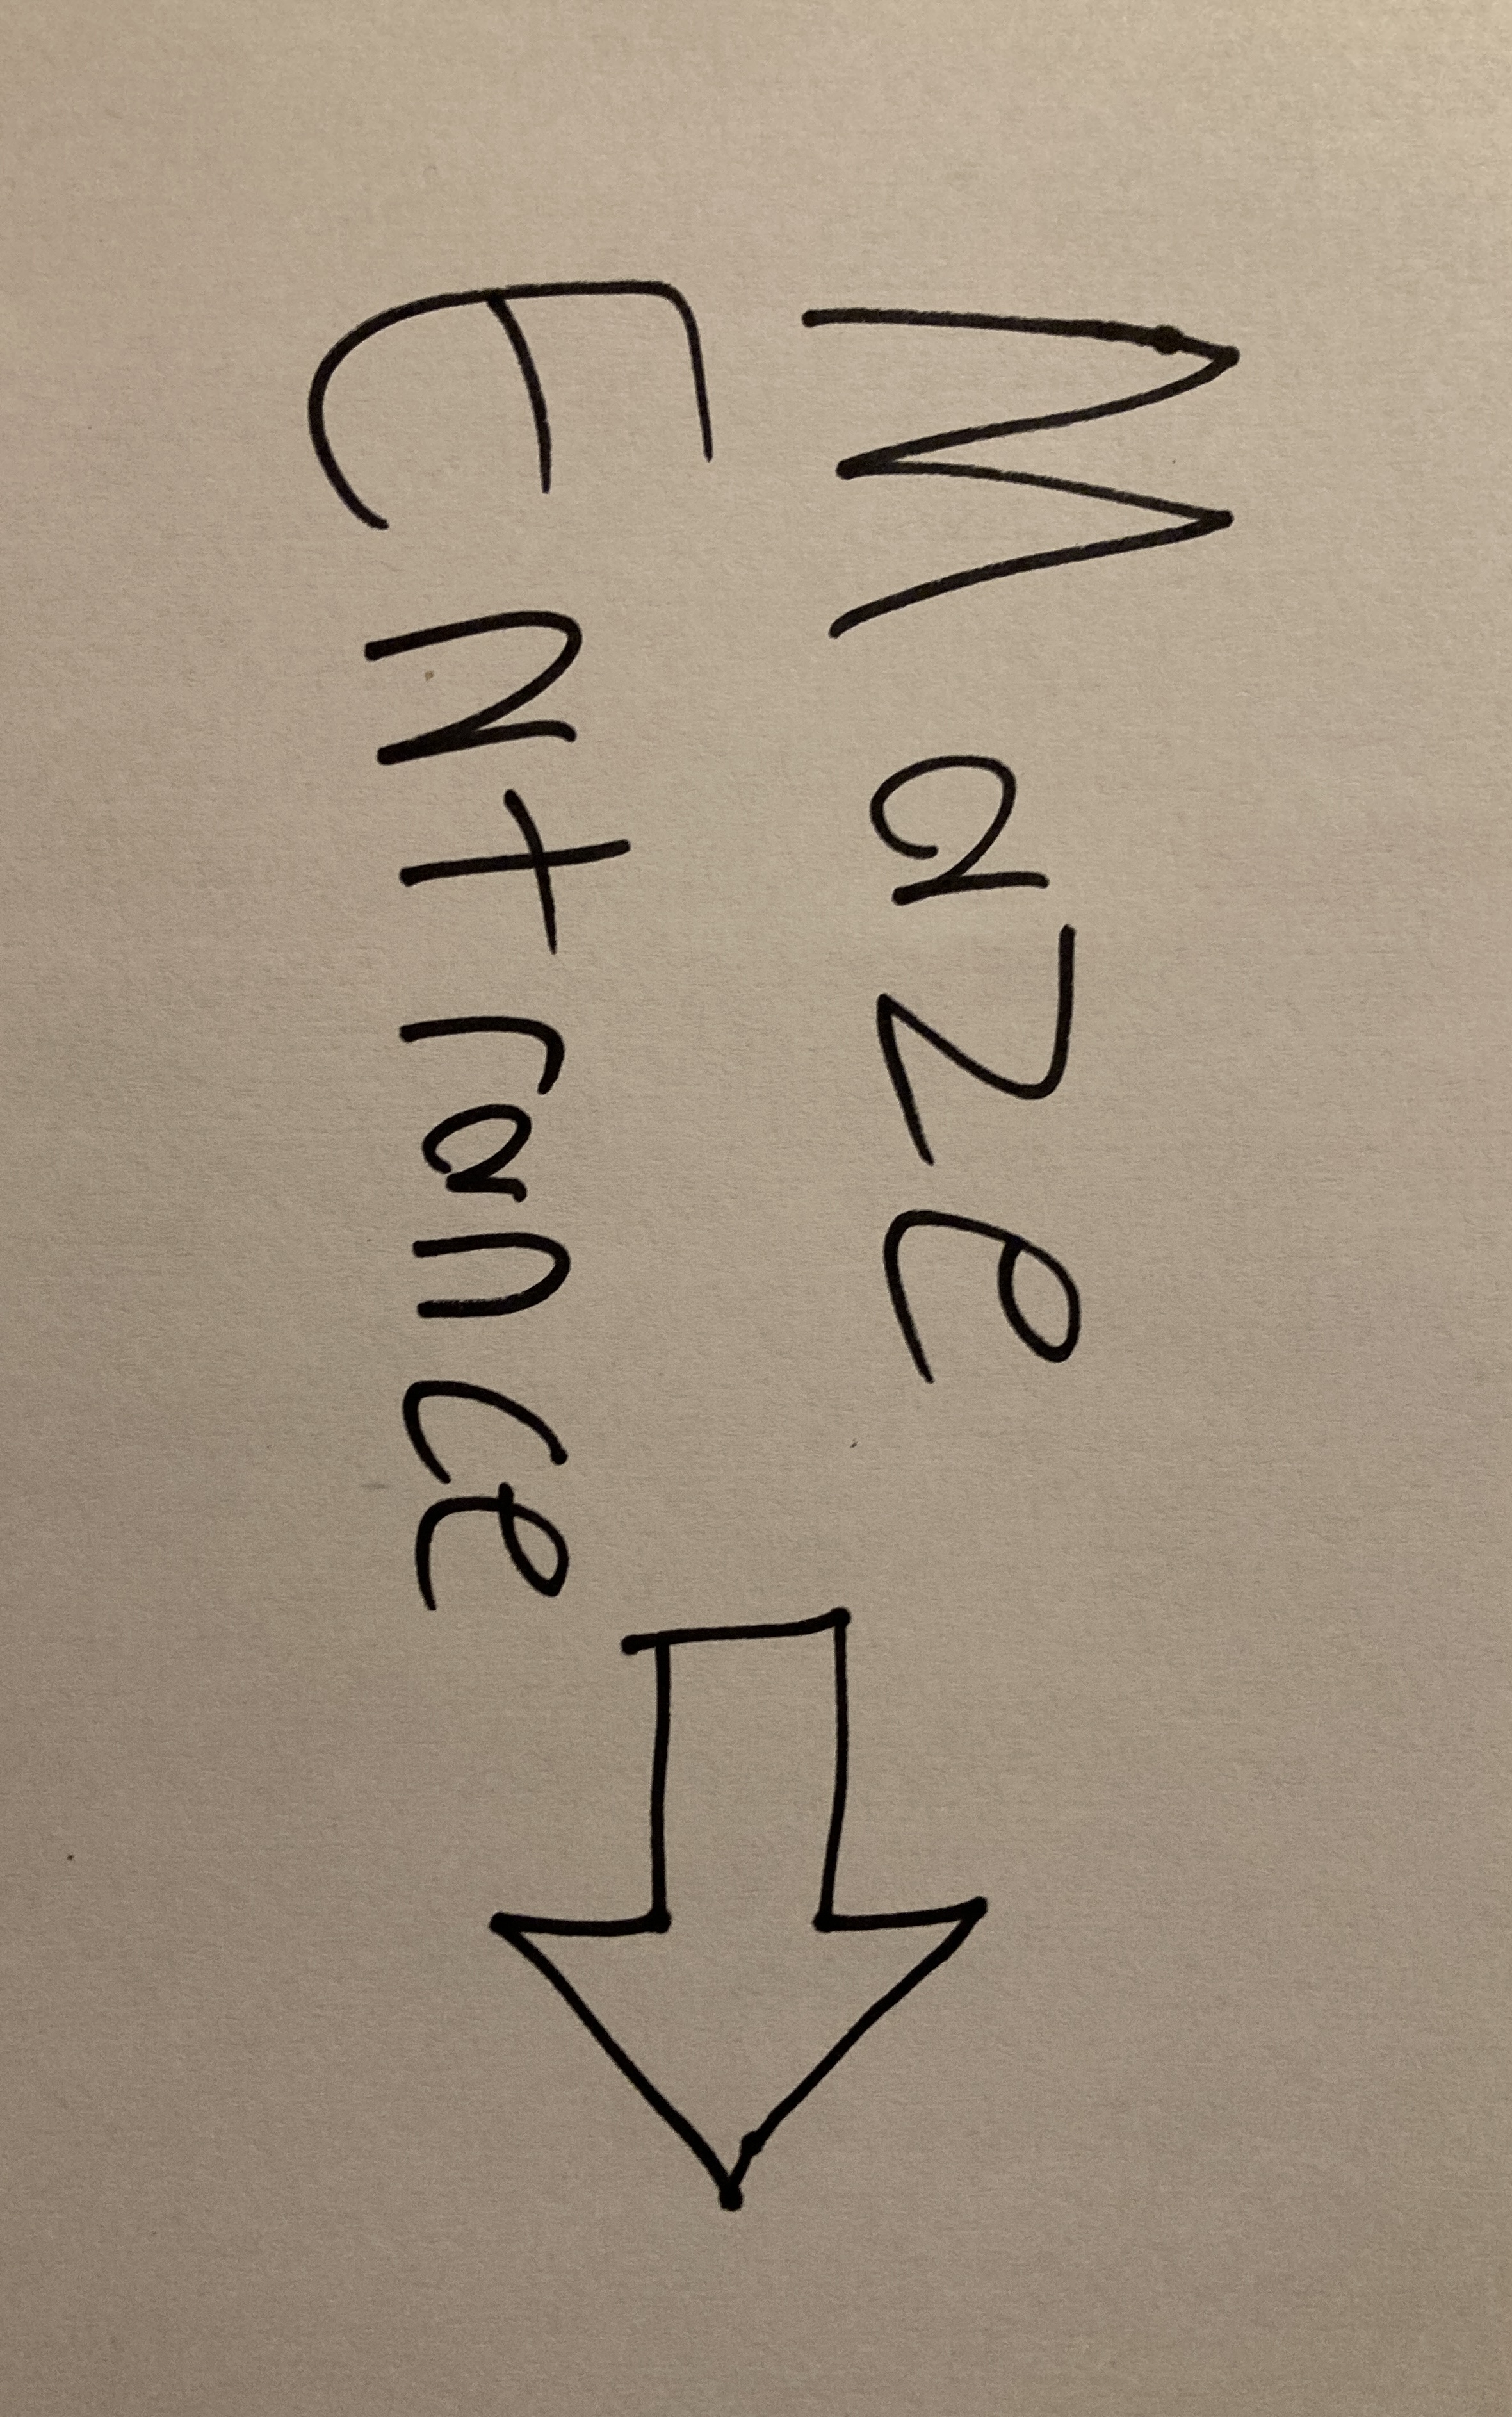 Maze
Entrance